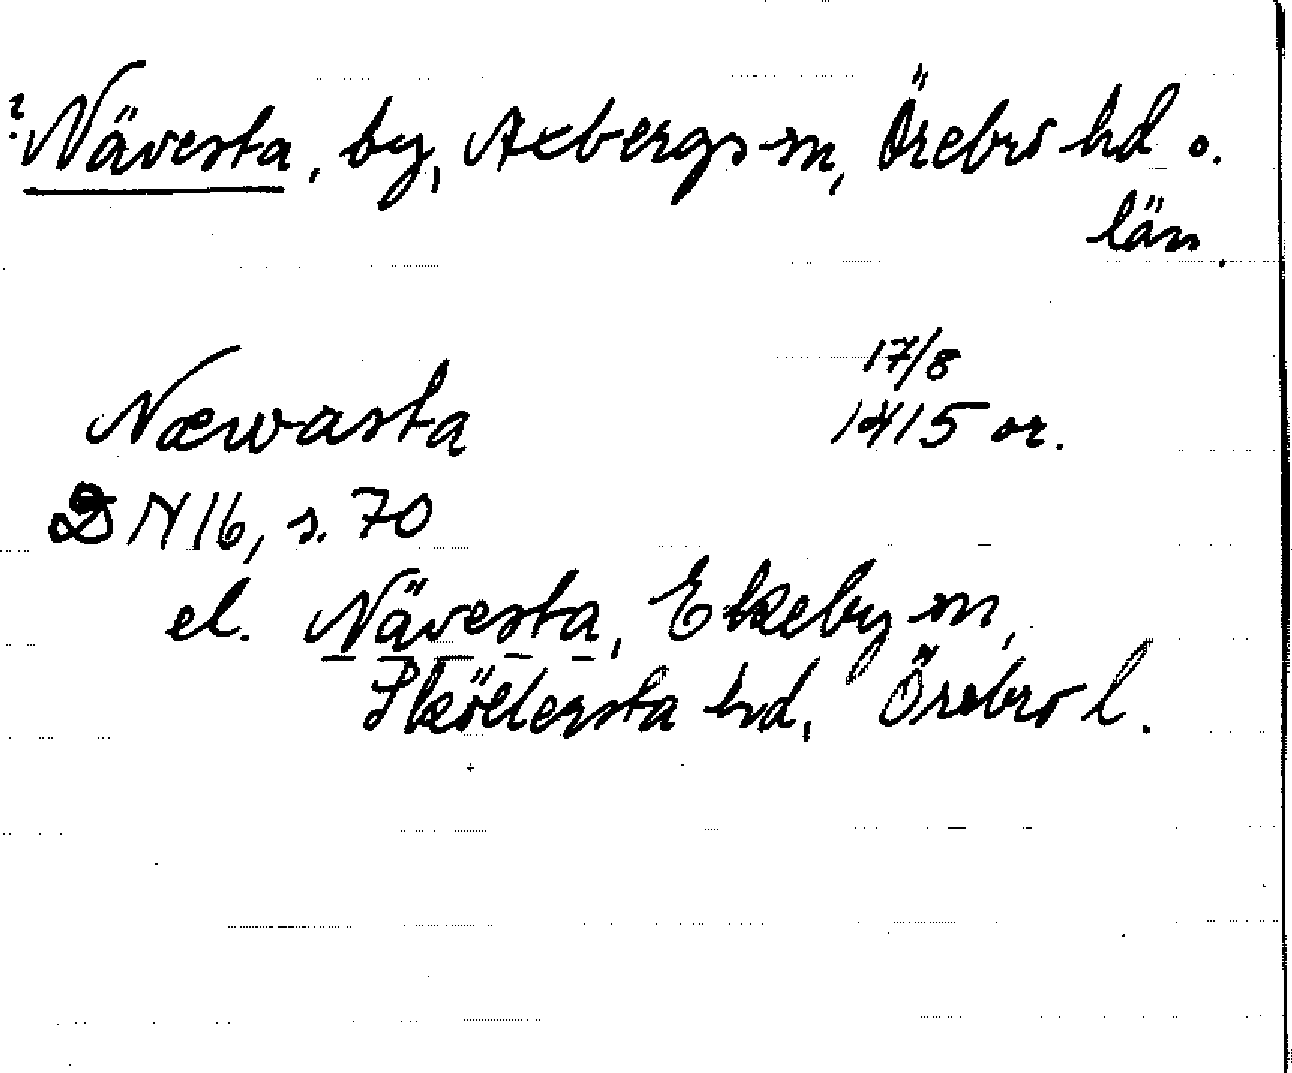 ? Nävesta, by, Axbergs sn, Örebro hd o.
län.
Næwasta 17/8
1415 or.
DN 16, s. 70
el. Nävesta, Ekeby sn,
Sköllersta hd, Örebro l.